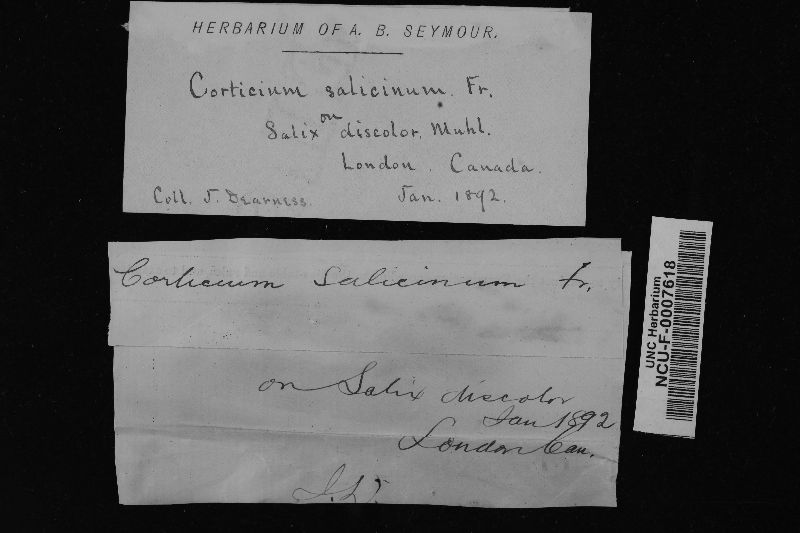 HERBARIUM OF A. B. SEYMOUR.
Corticium salicinum. Fr.
on
Salix discolor, Muhl.
London, Canada.
Coll. J. Dearness. Jan. 1892.
Corticium salicinum Fr.
on Salix discolor
Jan 1892
London Can.
J.D.
UNC Herbarium
NCU-F-0007618